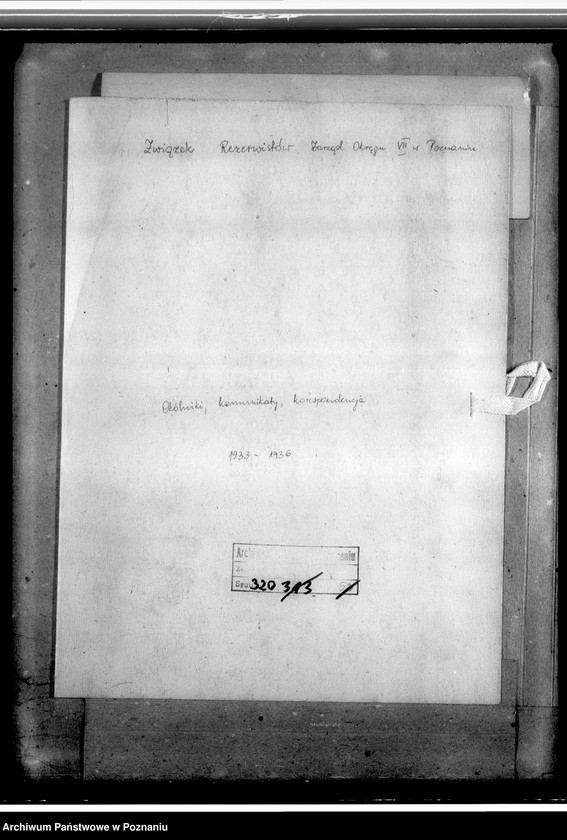 Związek Rezerwistów Zarząd Okręgu VII w Poznaniu
Okólniki, komunikaty, korespondencja
1933 - 1936
320 3/13
Archiwum Państwowe w Poznaniu